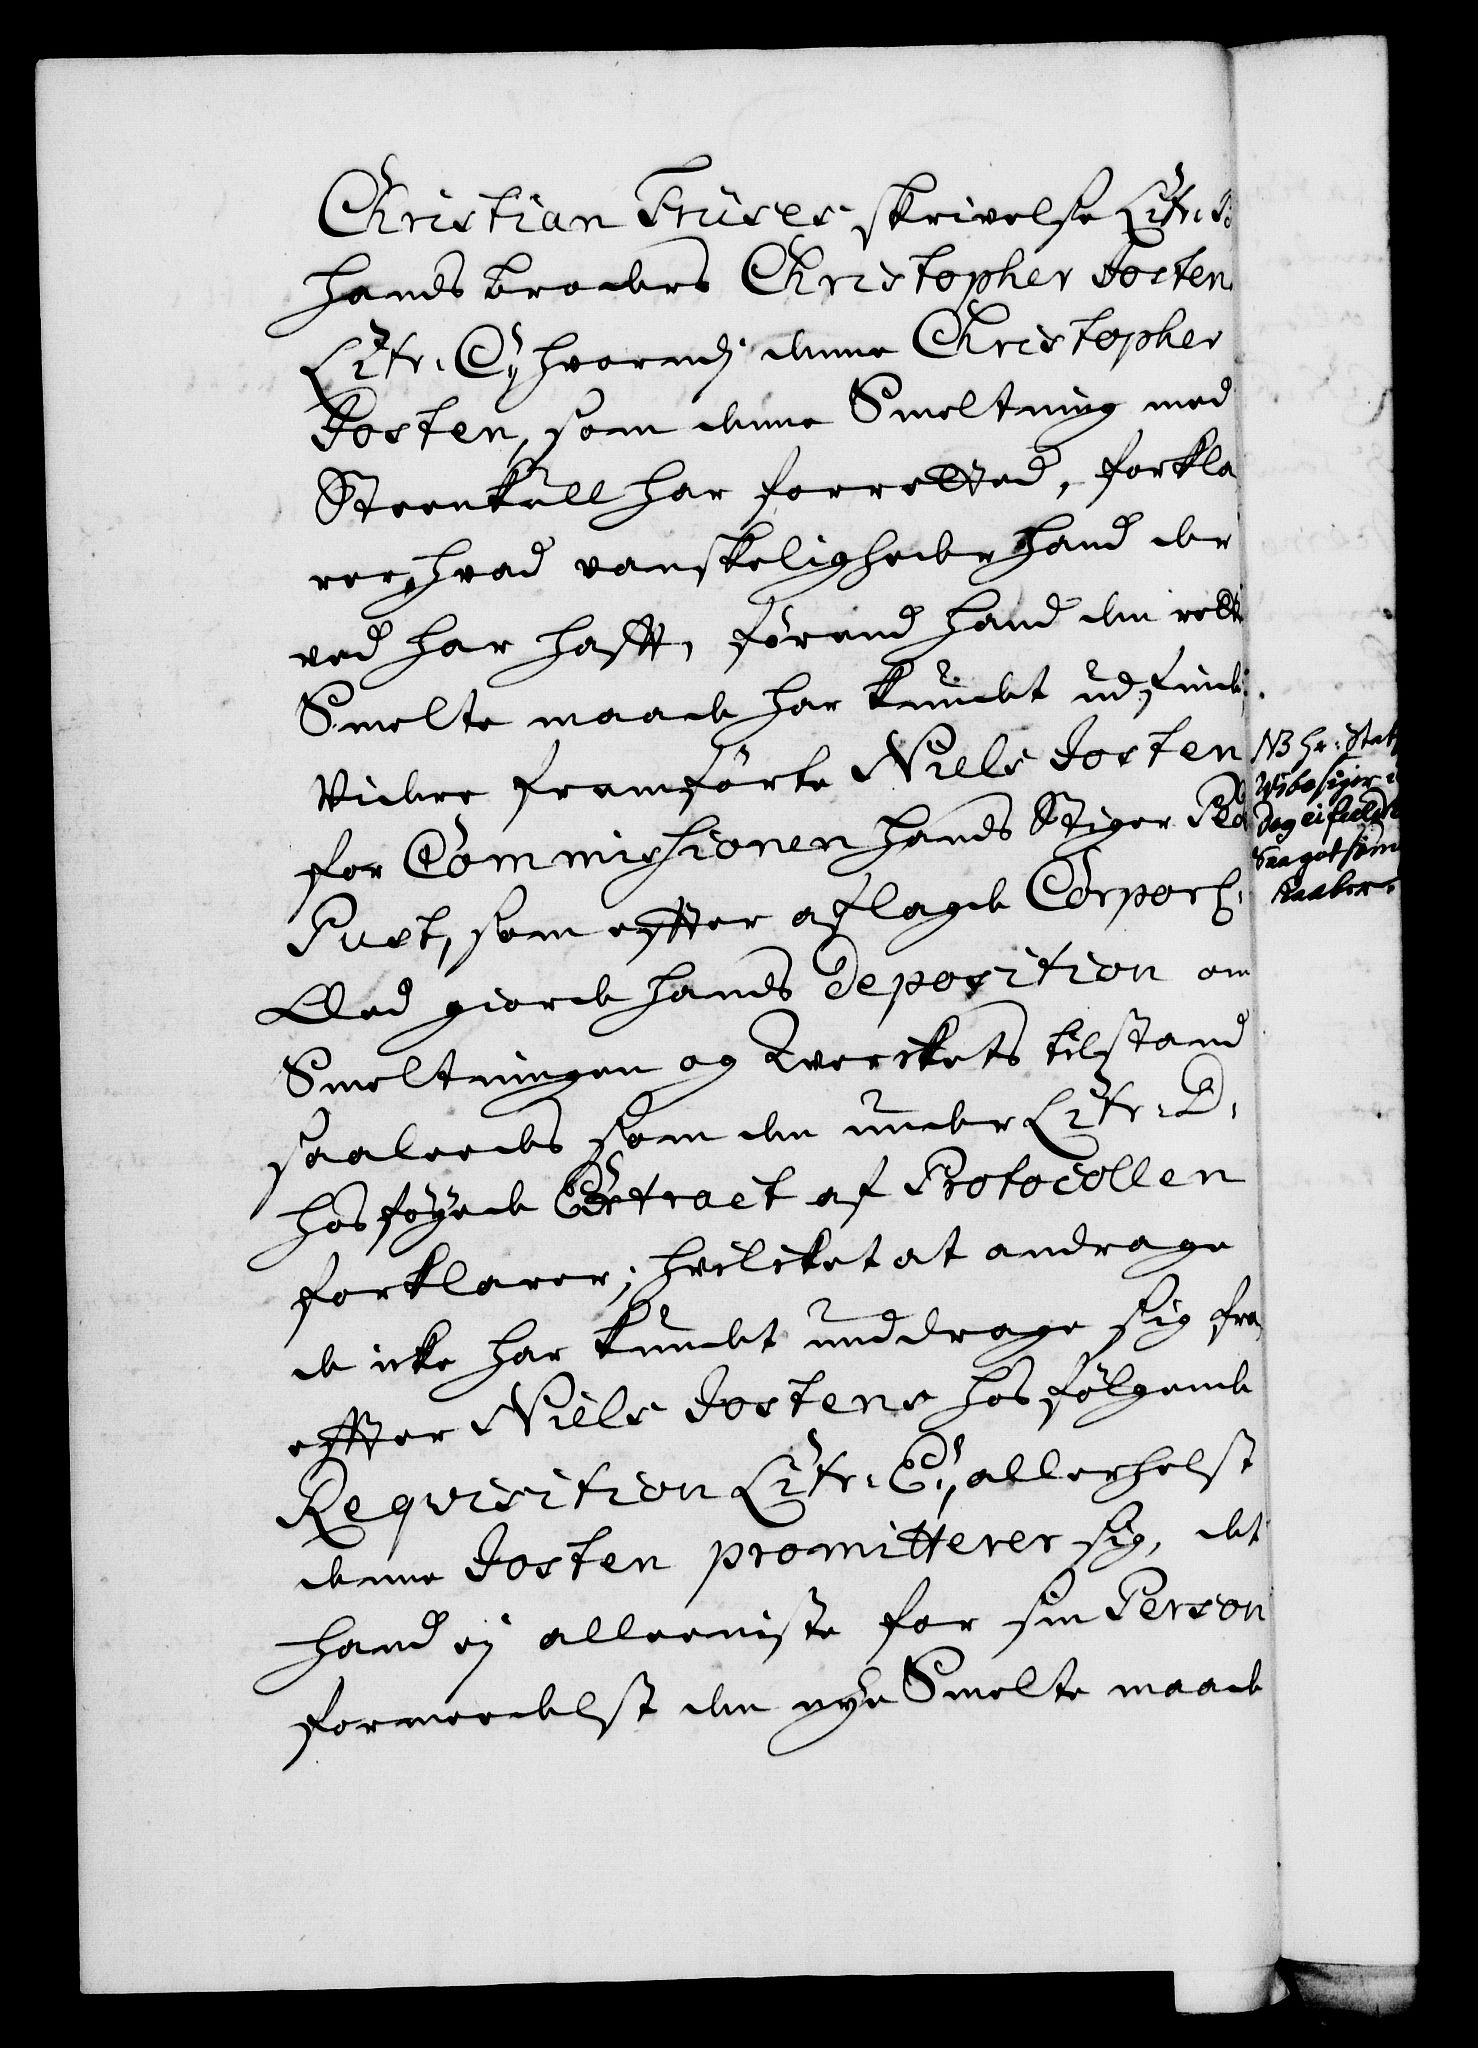 Christian Frises skrivelse Litr: B
hands broders Christopher Josten
Litr: C, hvorudj denne Christopher
Josten, som denne Smeltning med
Steenkull har forretted, forkla
rer, hvad vanskeligheder hand der
ved har hafft, förend hand den rett
Smelte maade har kundet udfinde.
Videre fremförte Niels Josten
for Commissionen hands Stiger Pe
Pust, som effter aflagde Corporl:
Eed giorde hands Deposition om
Smeltningen og Werckets tilstand
saaleedes som den under Litr: D:
hosföyede Extract af Protocollen
forklarer; hvilcket at andrage
de icke har kundet unddrage sig fra,
effter Niels Jostens hosfölgende
Requisition Litr: E:, allerhelst
denne Josten promitterer sig, det
hand ej alleeniste for sin Person
formeedelst den nye Smelte maade
NB hr: Stat
dog ei fuld
Saa got som
Kaaber